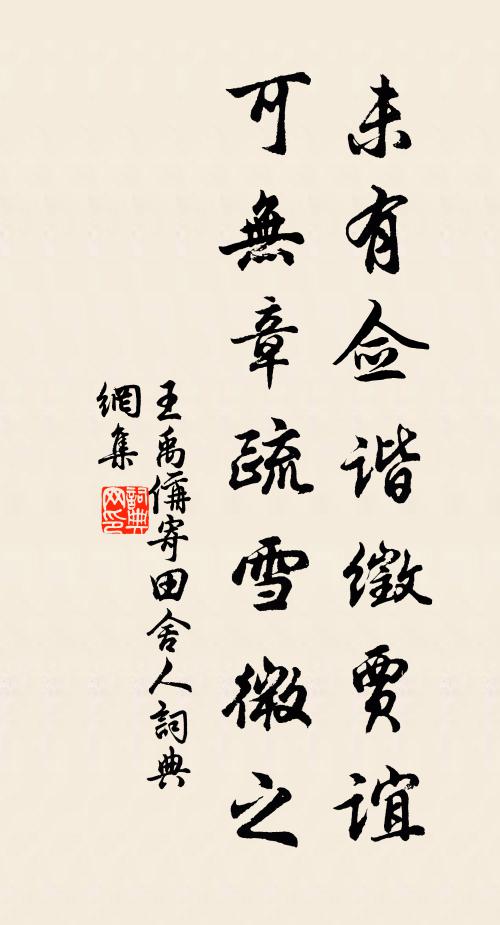 未有僉諧徵賈誼
可無章疏雪微之
王禹偁寄田舍人詞典
網集
詞典網印